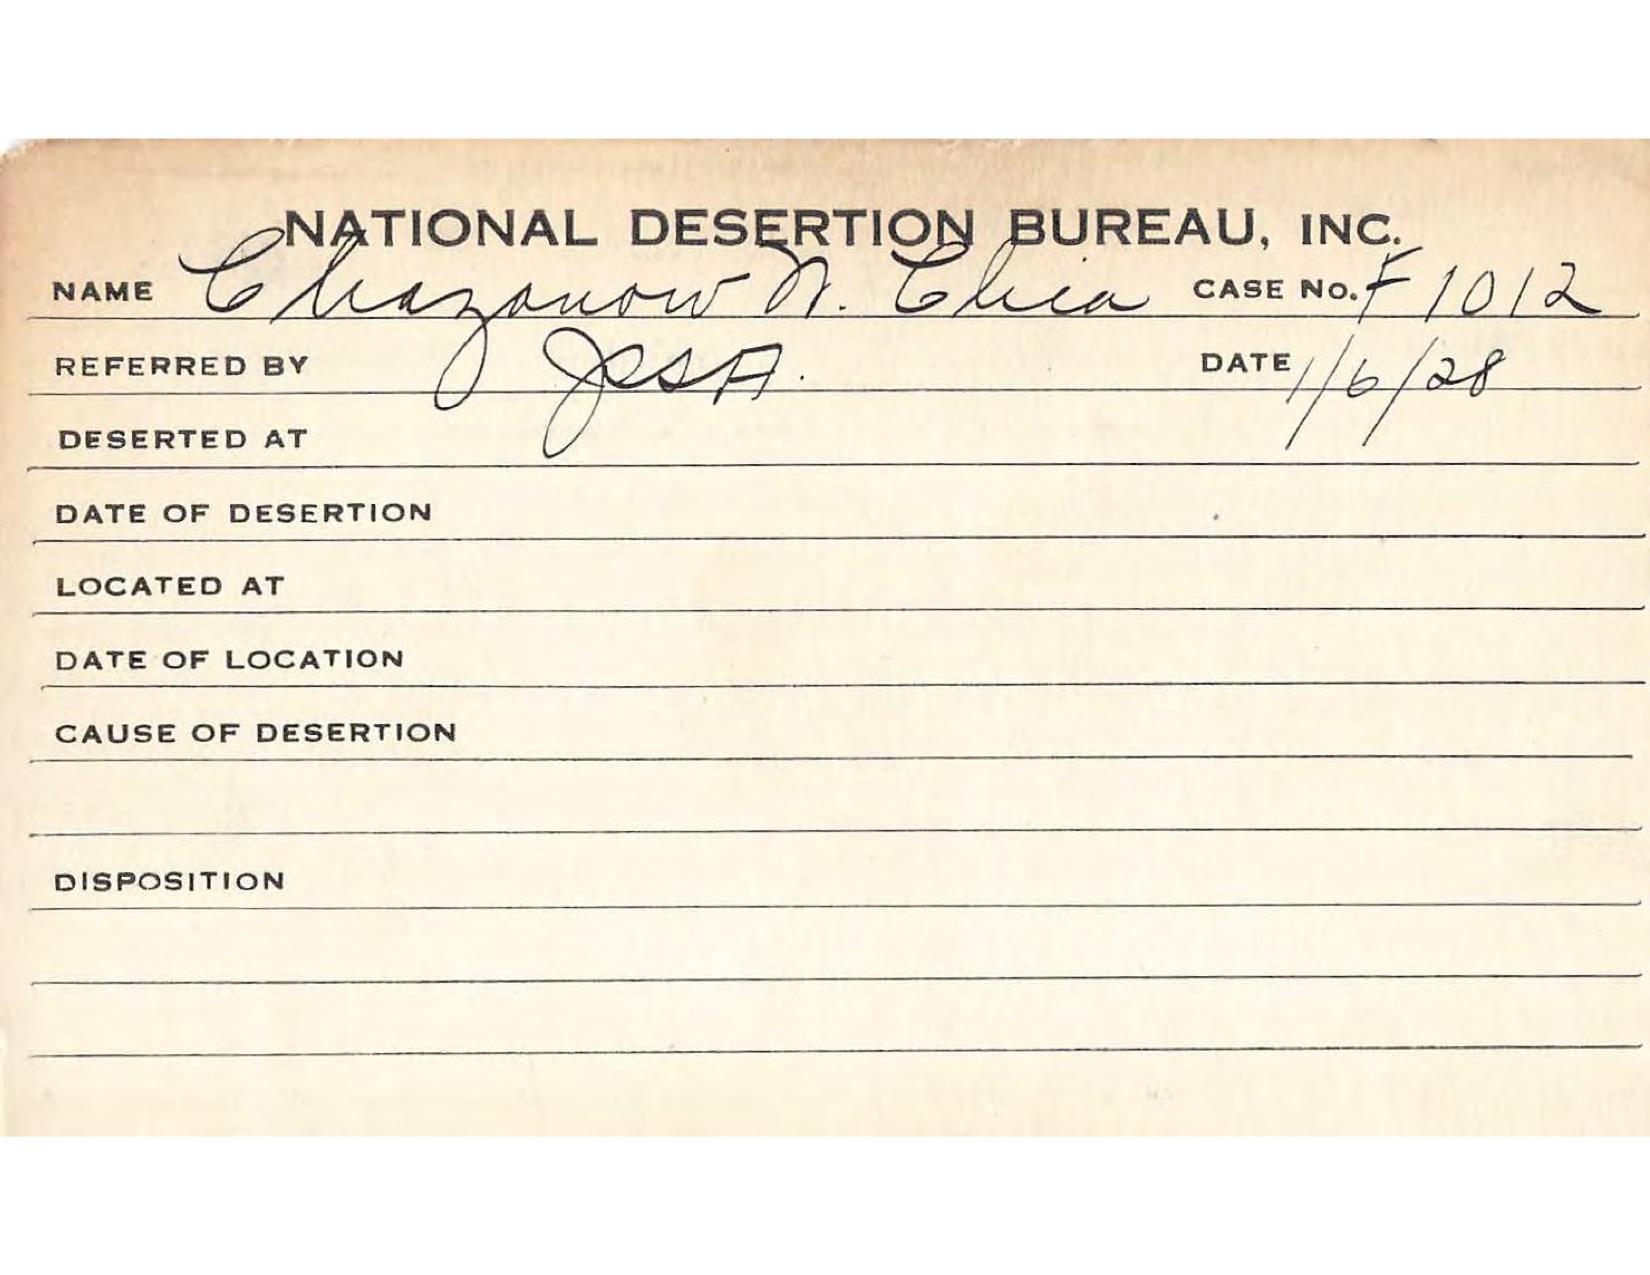 NATIONAL DESERTION BUREAU, INC.
NAME Chazanow N. Chia CASE No. F 1012
REFERRED BY JSSA. DATE 1/6/28
DESERTED AT
DATE OF DESERTION
LOCATED AT
DATE OF LOCATION
CAUSE OF DESERTION
DISPOSITION